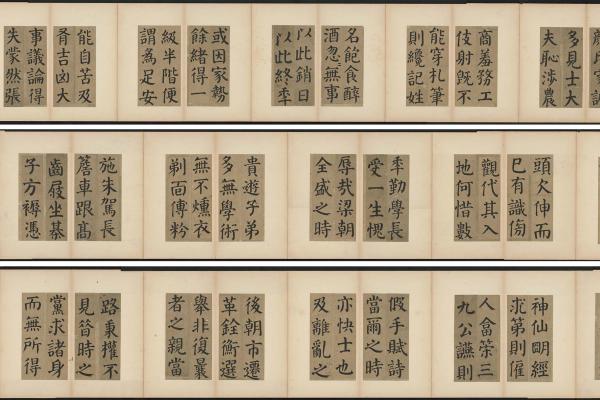 多見士大
夫恥涉農
商羞務工
伎射既不
能穿札筆
則纔記姓
名飽食醉
酒忽忽無事
以此銷日
以此終秊
或因家勢
餘緒得一
級半階便
謂為足安
能自苦及
有吉凶大
事議論得
失蒙然張
頭欠伸而
已有識傍
觀代其入
地何惜數
秊勤學長
受一生愧
辱哉梁朝
全盛之時
貴遊子弟
多無學術
無不燻衣
剃面傅粉
施朱駕長
簷車跟高
齒屐坐棊
子方褥憑
神仙明經
求第則僱
人畣策三
九公讌則
假手賦詩
當爾之時
亦快士也
及離亂之
後朝市遷
革銓衡選
舉非復曩
者之親當
路秉權不
見昔時之
黨求諸身
而無所得